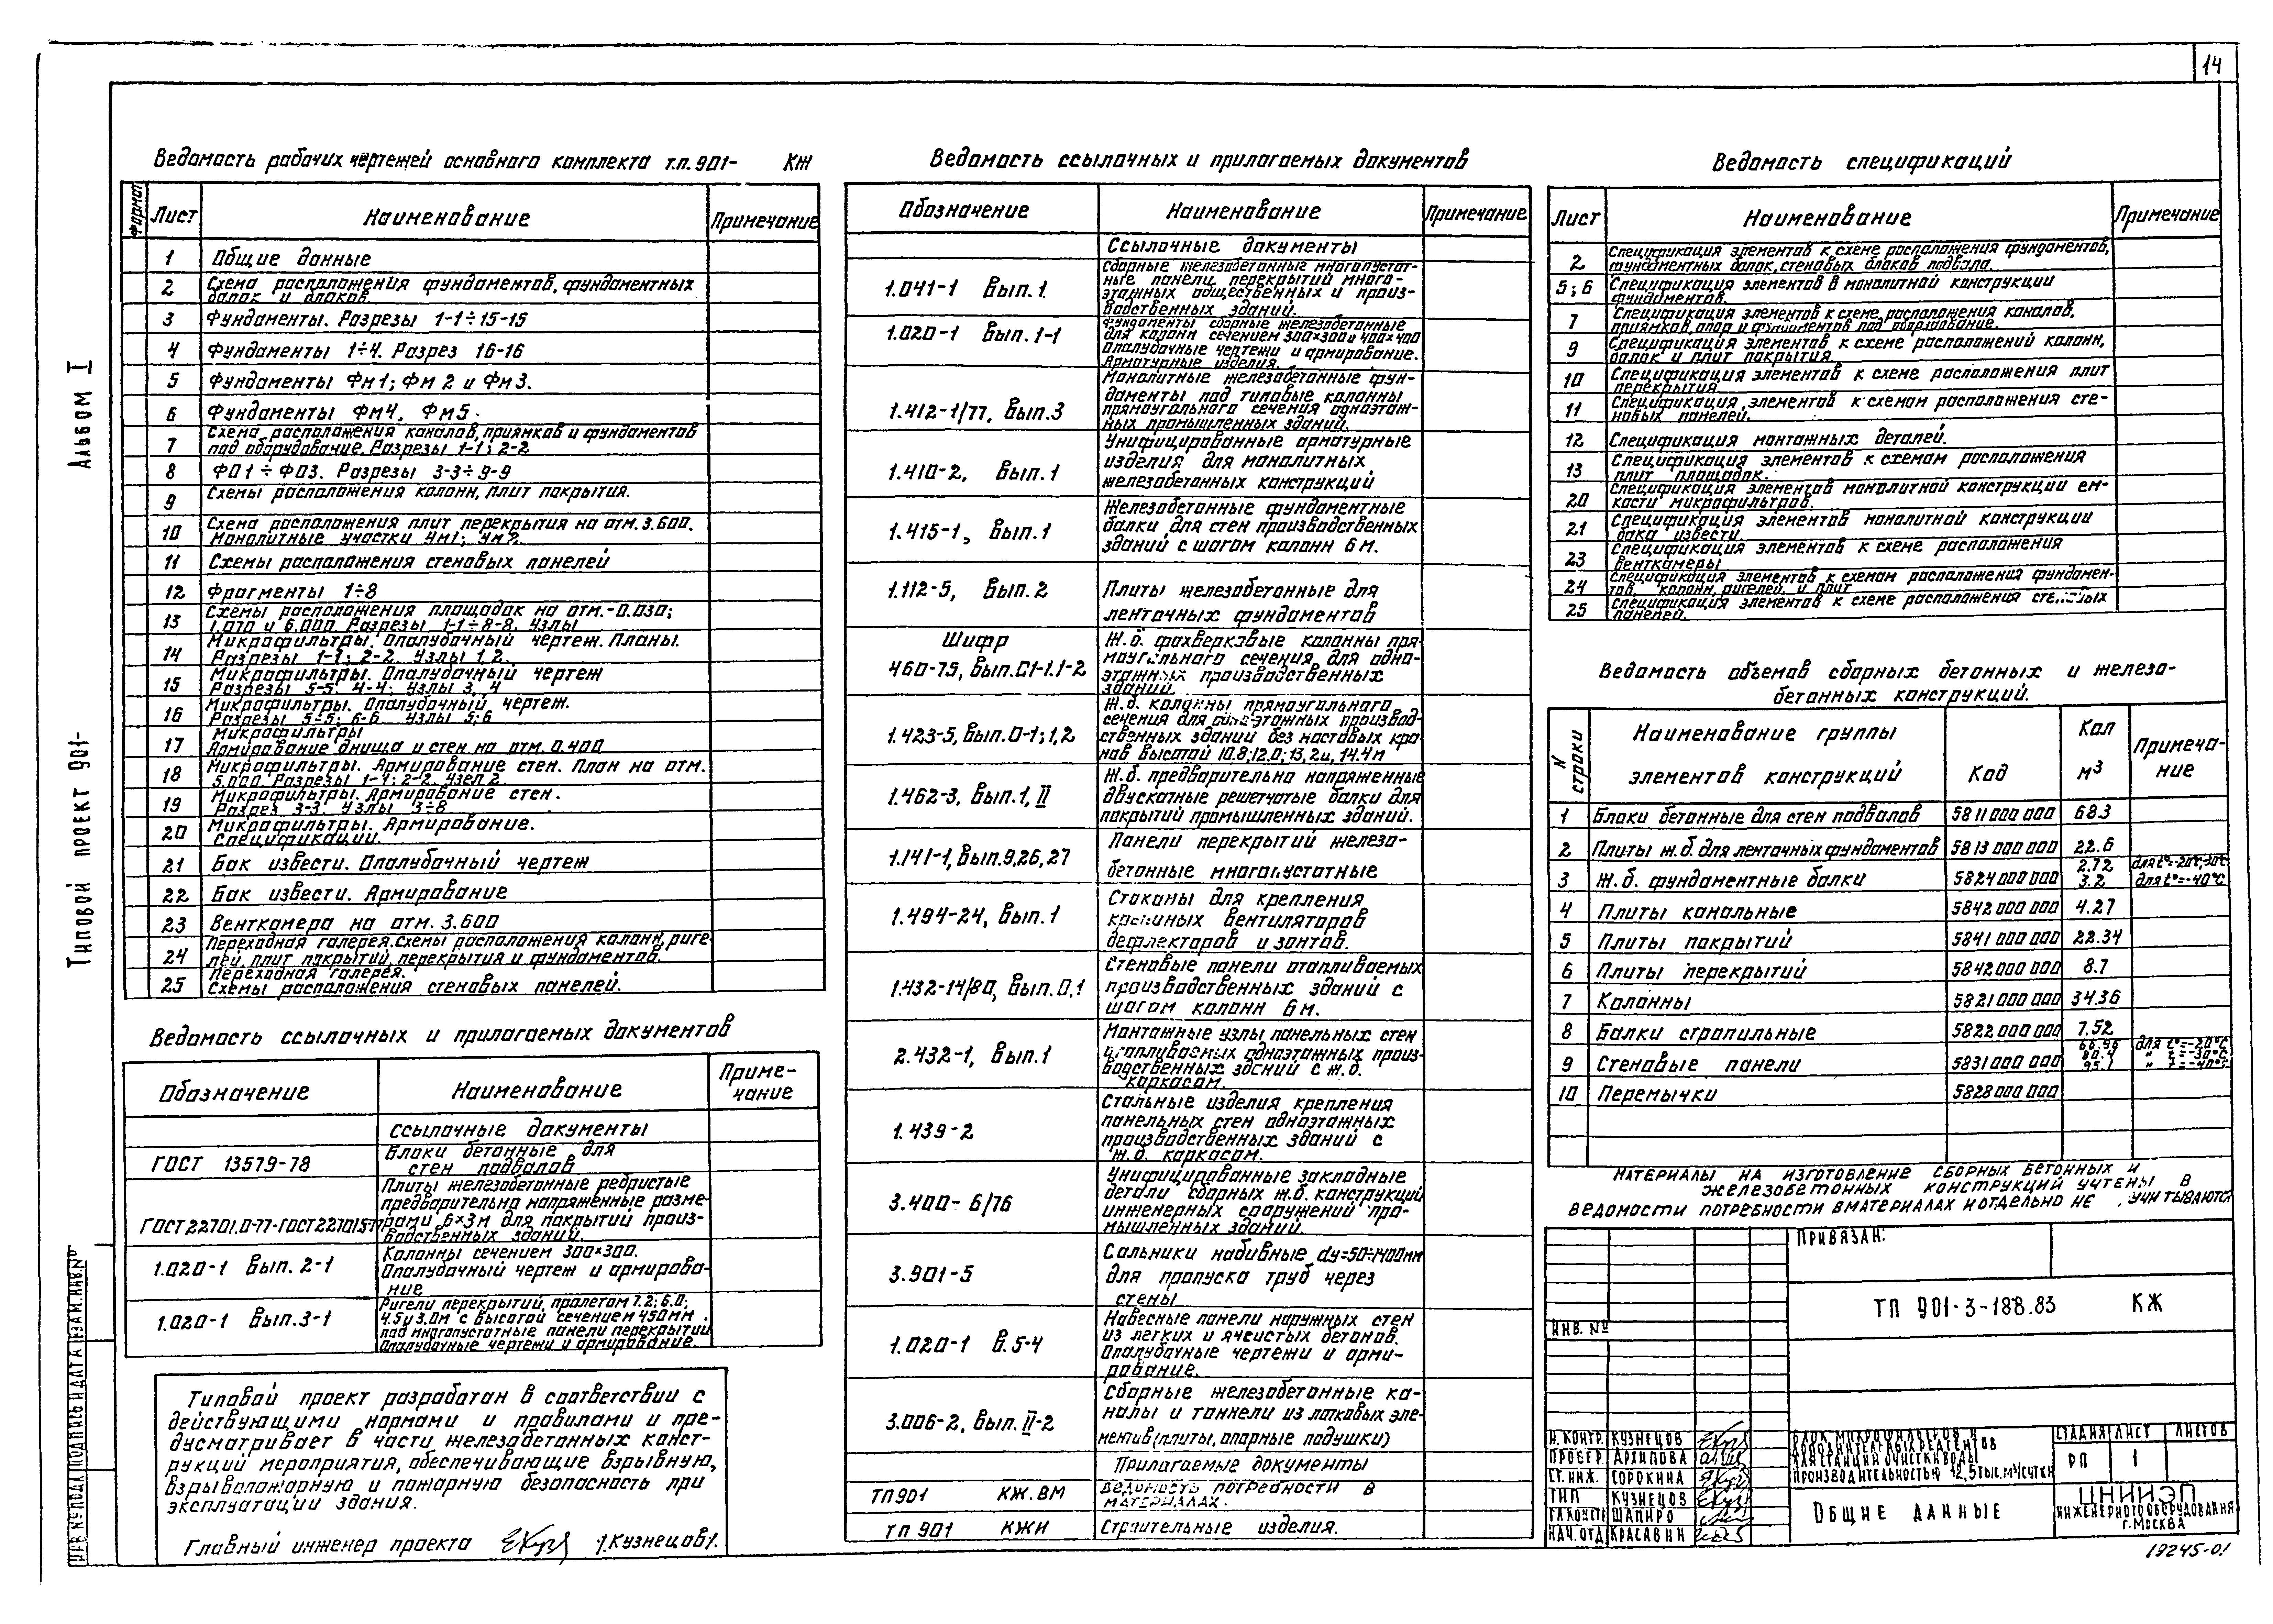 14
Альбом I
Типовой проект 901-
Ведомость рабочих чертежей основного комплекта т.п. 901- КЖ
Формат Лист Наименование Примечание
1 Общие данные
2 Схема расположения фундаментов, фундаментных
балок и блоков.
3 Фундаменты. Разрезы 1-1÷15-15
4 Фундаменты 1÷4. Разрез 16-16
5 Фундаменты Фм1; Фм 2 и Фм3.
6 Фундаменты Фм4, Фм5.
7 Схема расположения каналов, приямков и фундаментов
под оборудование. Разрезы 1-1; 2-2
8 ФО1÷ФО3. Разрезы 3-3÷9-9
9 Схемы расположения колонн, плит покрытия.
10 Схема расположения плит перекрытия на отм. 3.600.
Монолитные участки Ум1; Ум2.
11 Схемы расположения стеновых панелей
12 Фрагменты 1÷8
13 Схемы расположения площадок на отм.-0.030;
1.070 и 6.000 Разрезы 1-1÷8-8. Узлы
14 Микрофильтры. Опалубочный чертеж. Планы.
Разрезы 1-1; 2-2. Узлы 1,2.
15 Микрофильтры. Опалубочный чертеж
Разрезы 5-5; 4-4; Узлы 3,4
16 Микрофильтры. Опалубочный чертеж.
Разрезы 5-5; 6-6. Узлы 5;6
17 Микрофильтры
Армирование днища и стен на отм. 0.400
18 Микрофильтры. Армирование стен. План на отм.
5.000. Разрезы 1-1; 2-2. Узел 2.
19 Микрофильтры. Армирование стен.
Разрез 3-3. Узлы 3÷8
20 Микрофильтры. Армирование.
Спецификации.
21 Бак извести. Опалубочный чертеж
22 Бак извести. Армирование
23 Венткамера на отм. 3.600
24 Переходная галерея. Схемы расположения колонн, риге-
лей, плит покрытий, перекрытия и фундаментов.
25 Переходная галерея.
Схемы расположения стеновых панелей.
Ведомость ссылочных и прилагаемых документов
Обозначение Наименование Приме-
чание
Ссылочные документы
ГОСТ 13579-78 Блоки бетонные для
стен подвалов
ГОСТ 22701.0-77-ГОСТ 22701.5-77 Плиты железобетонные ребристые
предварительно напряженные разме-
рами 6×3м для покрытий произ-
водственных зданий.
1.020-1 Вып. 2-1 Колонны сечением 300×300.
Опалубочный чертеж и армирова-
ние
1.020-1 Вып. 3-1 Ригели перекрытий, пролетом 7.2; 6.0;
4.5 и 3.0м с высотой сечением 450мм
под многопустотные панели перекрытий
Опалубочные чертежи и армирование.
Типовой проект разработан в соответствии с
действующими нормами и правилами и пре-
дусматривает в части железобетонных конст-
рукций мероприятия, обеспечивающие взрывную,
взрывопожарную и пожарную безопасность при
эксплуатации здания.
Главный инженер проекта /Кузнецов/.
Ведомость ссылочных и прилагаемых документов
Обозначение Наименование Примечание
Ссылочные документы
1.041-1 Вып. 1 Сборные железобетонные многопустот-
ные панели перекрытий много-
этажных общественных и произ-
водственных зданий.
1.020-1 Вып. 1-1 Фундаменты сборные железобетонные
для колонн сечением 300×300 и 400×400
Опалубочные чертежи и армирование.
Арматурные изделия.
1.412-1/77, Вып.3 Монолитные железобетонные фун-
даменты под типовые колонны
прямоугольного сечения одноэтаж-
ных промышленных зданий.
1.410-2, Вып. 1 Унифицированные арматурные
изделия для монолитных
железобетонных конструкций
1.415-1, Вып. 1 Железобетонные фундаментные
балки для стен производственных
зданий с шагом колонн 6 м.
1.112-5, Вып. 2 Плиты железобетонные для
ленточных фундаментов
Шифр
460-75, Вып.01-1.1-2 Ж.б. фахверковые колонны пря-
моугольного сечения для одно-
этажных производственных
зданий.
1.423-5, Вып. 0-1; 1,2 Ж.б. колонны прямоугольного
сечения для одноэтажных производ-
ственных зданий без мостовых кра-
нов высотой 10.8; 12.0; 13,2 и 14.4м
1.462-3, Вып. 1, II Ж.б. предварительно напряженные
двускатные решетчатые балки для
покрытий промышленных зданий.
1.141-1, Вып.9,26,27 Панели перекрытий железо-
бетонные многопустотные
1.494-24, Вып. 1 Стаканы для крепления
крышных вентиляторов
дефлекторов и зонтов.
1.432-14/80, Вып. 0,1 Стеновые панели отапливаемых
производственных зданий с
шагом колонн 6 м.
2.432-1, Вып. 1 Монтажные узлы панельных стен
отапливаемых одноэтажных произ-
водственных зданий с ж.б.
каркасом.
1.439-2 Стальные изделия крепления
панельных стен одноэтажных
производственных зданий с
ж.б. каркасом.
3.400-6/76 Унифицированные закладные
детали сборных ж.б. конструкций
инженерных сооружений про-
мышленных зданий.
3.901-5 Сальники набивные dy=50÷1400мм
для пропуска труб через
стены
1.020-1 В.5-4 Навесные панели наружных стен
из легких и ячеистых бетонов.
Опалубочные чертежи и арми-
рование.
3.006-2, Вып. II-2 Сборные железобетонные ка-
налы и тоннели из лотковых эле-
ментов (плиты, опорные подушки)
Прилагаемые документы
ТП901 КЖ.ВМ Ведомость потребности в
материалах.
ТП 901 КЖИ Строительные изделия.
Ведомость спецификаций
Лист Наименование Примечание
2 Спецификация элементов к схеме расположения фундаментов,
фундаментных балок, стеновых блоков подвала.
5; 6 Спецификация элементов в монолитной конструкции
фундаментов.
7 Спецификация элементов к схеме расположения каналов,
приямков, опор и фундаментов под оборудование.
9 Спецификация элементов к схеме расположений колонн,
балок и плит покрытия.
10 Спецификация элементов к схеме расположения плит
перекрытия
11 Спецификация элементов к схемам расположения сте-
новых панелей.
12 Спецификация монтажных деталей.
13 Спецификация элементов к схемам расположения
плит площадок.
20 Спецификация элементов монолитной конструкции ем-
кости микрофильтров.
21 Спецификация элементов монолитной конструкции
бака извести.
23 Спецификация элементов к схеме расположения
венткамеры
24 Спецификация элементов к схемам расположения фундамен-
тов, колонн, ригелей, и плит
25 Спецификация элементов к схеме расположения стеновых
панелей.
Ведомость объемов сборных бетонных и железо-
бетонных конструкций.
N строки Наименование группы элементов конструкций Код Кол м³ Примеча-
ние
1 Блоки бетонные для стен подвалов 5811000000 68.3
2 Плиты ж.б. для ленточных фундаментов 5813000000 22.6
3 Ж.б. фундаментные балки 5824000000 2.72 для t°=-20°С;-30°С
3.2 для t°=-40°С
4 Плиты канальные 5842000000 4.27
5 Плиты покрытий 5841000000 22.34
6 Плиты перекрытий 5842000000 8.7
7 Колонны 5821000000 34.36
8 Балки стропильные 5822000000 7.52
9 Стеновые панели 5831000000 для t°=-20°С
80.4 " t=-30°С
95.1 " t=-40°С
10 Перемычки 5828000000
Материалы на изготовление сборных бетонных и
железобетонных конструкций учтены в
ведомости потребности в материалах и отдельно не учитываются
Привязан:
Инв. №
ТП 901-3-188.83 КЖ
Н. контр. Кузнецов
Провер. Архипова
Ст. инж. Сорокина
ГИП Кузнецов
Гл. констр Шапиро
Нач. отд. Красавин
Блок микрофильтров и
дополнительных реагентов
для станции очистки воды
производительностью 12,5 тыс. м³/сутки
Общие данные
Стадия Лист Листов
РП 1
ЦНИИЭП
инженерного оборудования
г. Москва
Инв. № подл. Подпись и дата Взам. инв. №
19245-01